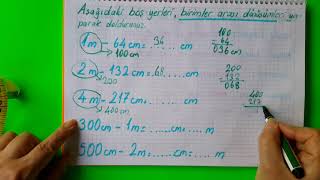 Aşağıdaki boş yerleri, birimler arası dönüşümleri ya-
parak doldurunuz.
1m - 64 cm = ..36.. cm
100 cm
100
64
036 cm
2m - 132 cm = ..68.. cm
200
200
132
068
4m - 217 cm = ...... cm
400 cm
400
217
300 cm - 1m = ...... cm = ...... m
500 cm - 2m = ...... cm ...... m